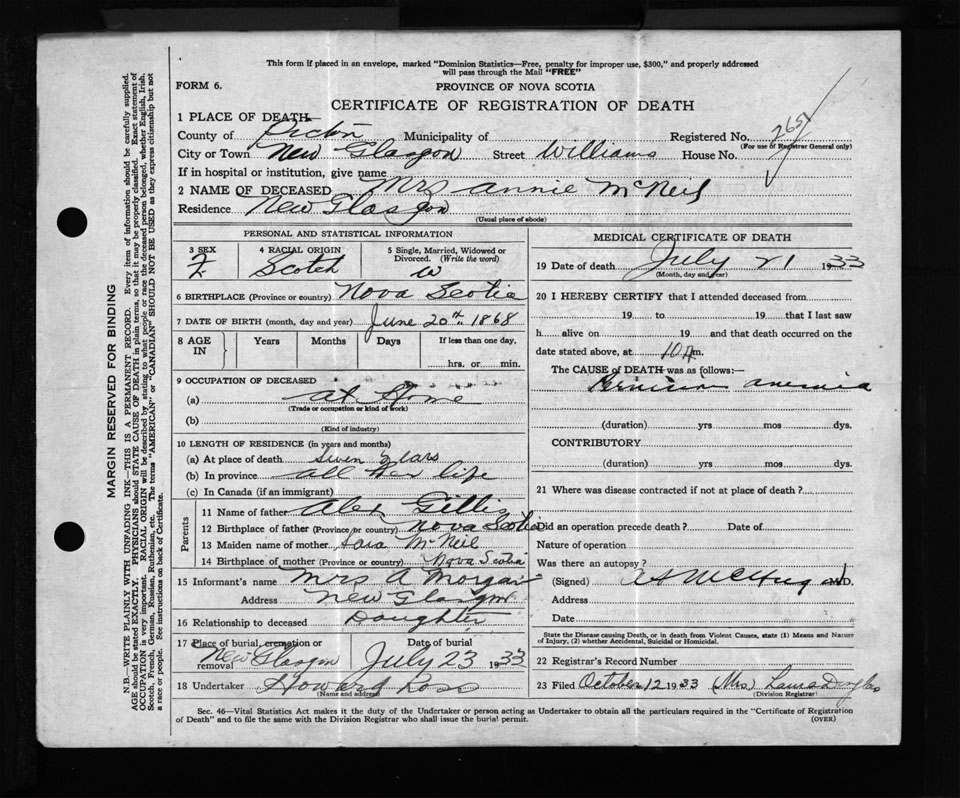 This form if placed in an envelope, marked "Dominion Statistics—Free, penalty for improper use, $300," and properly addressed
will pass through the Mail "FREE"
FORM 6.
PROVINCE OF NOVA SCOTIA
CERTIFICATE OF REGISTRATION OF DEATH
1 PLACE OF DEATH—
County of Pictou Municipality of Registered No.
(For use of Registrar General only)
City or Town New Glasgow Street Williams House No.
If in hospital or institution, give name
2 NAME OF DECEASED Mrs Annie McNeil
Residence New Glasgow
(Usual place of abode)
PERSONAL AND STATISTICAL INFORMATION
3 SEX F
4 RACIAL ORIGIN Scotch
5 Single, Married, Widowed or Divorced. (Write the word) W
6 BIRTHPLACE (Province or country) Nova Scotia
7 DATE OF BIRTH (month, day and year) June 20th 1868
8 AGE IN Years Months Days If less than one day,
hrs. or min.
9 OCCUPATION OF DECEASED
(a) at Home
(Trade or occupation or kind of work)
(b)
(Kind of industry)
10 LENGTH OF RESIDENCE (in years and months)
(a) At place of death Seven years
(b) In province all her life
(c) In Canada (if an immigrant)
Parents
11 Name of father Alex Gillis
12 Birthplace of father (Province or country) Nova Scotia
13 Maiden name of mother McNeil
14 Birthplace of mother (Province or country) Nova Scotia
15 Informant's name Mrs A Morgan
Address New Glasgow
16 Relationship to deceased Daughter
17 Place of burial, cremation or removal New Glasgow
Date of burial July 23 1933
18 Undertaker Howard Ross
MEDICAL CERTIFICATE OF DEATH
19 Date of death July 21 1933
(Month, day and year)
20 I HEREBY CERTIFY that I attended deceased from
19 to 19 that I last saw
h alive on 19 and that death occurred on
date stated above, at 10 m.
The CAUSE of DEATH was as follows:—
Pernicious anemia
(duration) yrs mos dys.
CONTRIBUTORY
(duration) yrs mos dys.
21 Where was disease contracted if not at place of death?
Did an operation precede death? Date of
Nature of operation
Was there an autopsy?
(Signed) M.D.
Address
Date
State the Disease causing Death, or in death from Violent Causes, state (1) Means and Nature
of Injury, (2) whether Accidental, Suicidal or Homicidal.
22 Registrar's Record Number
23 Filed October 12 1933 (Mrs) Laura Douglas
(Division Registrar)
Sec. 46—Vital Statistics Act makes it the duty of the Undertaker or person acting as Undertaker to obtain all the particulars required in the "Certificate of Registration
of Death" and to file the same with the Division Registrar who shall issue the burial permit.
(OVER)
MARGIN RESERVED FOR BINDING
N.B.—WRITE PLAINLY WITH UNFADING INK—THIS IS A PERMANENT RECORD. Every item of information should be carefully supplied.
AGE should be stated EXACTLY. PHYSICIANS should STATE CAUSE OF DEATH in plain terms, so that it may be properly classified. Exact statement of
OCCUPATION is very important. RACIAL ORIGIN will be described by stating to what people or race the deceased person belonged, whether English, Irish,
Scotch, French, German, Russian, Ruthenian, etc. The terms "AMERICAN" or "CANADIAN" SHOULD NOT BE USED as they express citizenship but not
a race or people. See instructions on back of Certificate.